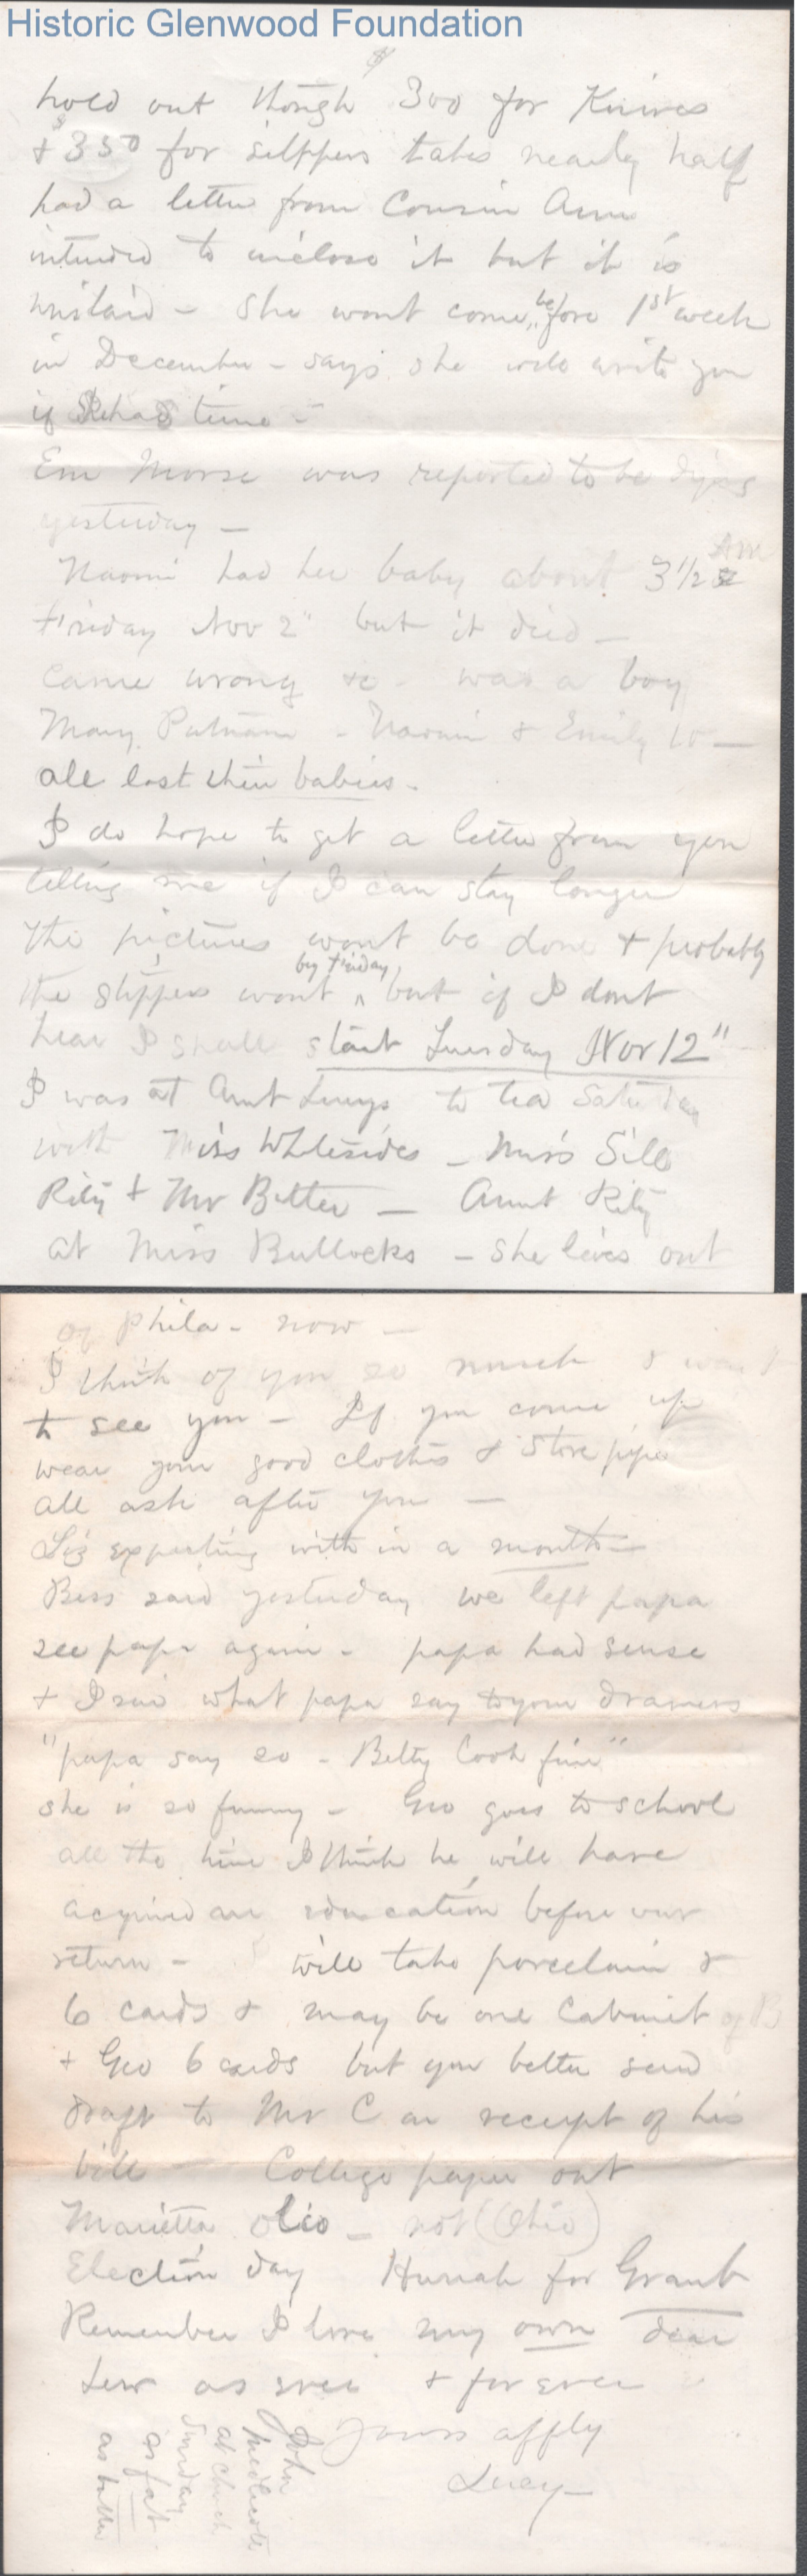 Historic Glenwood Foundation
hold out though $300 for Knives
& $350 for silppers takes nearly half
had a letter from Cousin Ann
intended to inclose it but it is
mislaid - She wont come before 1st week
in December - says she will write you
if She has time -
Em Morse was reported to be dying
yesterday -
Naomi had her baby about 3 1/2 AM
Friday Nov 2" but it died -
came wrong &c - was a boy
Mary Putnam - Naomi & Emily W -
all lost their babies.
I do hope to get a letter from you
telling me if I can stay longer
The pictures wont be done & probably
the slippers wont by Friday but if I dont
hear I shall start Tuesday Nov 12"
I was at Aunt Lucys to tea Saturday
with Miss Whitesides - Miss Sill
Rity & Mr Better - Aunt Rity
at Miss Bullocks - she lives out
of Phila - now -
I think of you so much & want
to see you - If you come up
wear your good clothes & Stove pipe
all ask after you -
Liz expecting with in a month -
Bess said yesterday we left papa
see papa again - papa had sense
& I said what papa say to your drawers
"papa say so - Betty Cook fine"
she is so funny - Geo goes to school
all the time I think he will have
acquired an education before our
return - will take porcelain &
6 cards & may be one Cabinet of B
& Geo 6 cards but you better send
draft to Mr C on receipt of his
bill - College paper out
Marietta Olio - not (Ohio)
Election day Hurrah for Grant
Remember I love my own dear
Lew as ever & forever
Yours affly
Lucy -
John
at church
Sunday
as fat
as butter